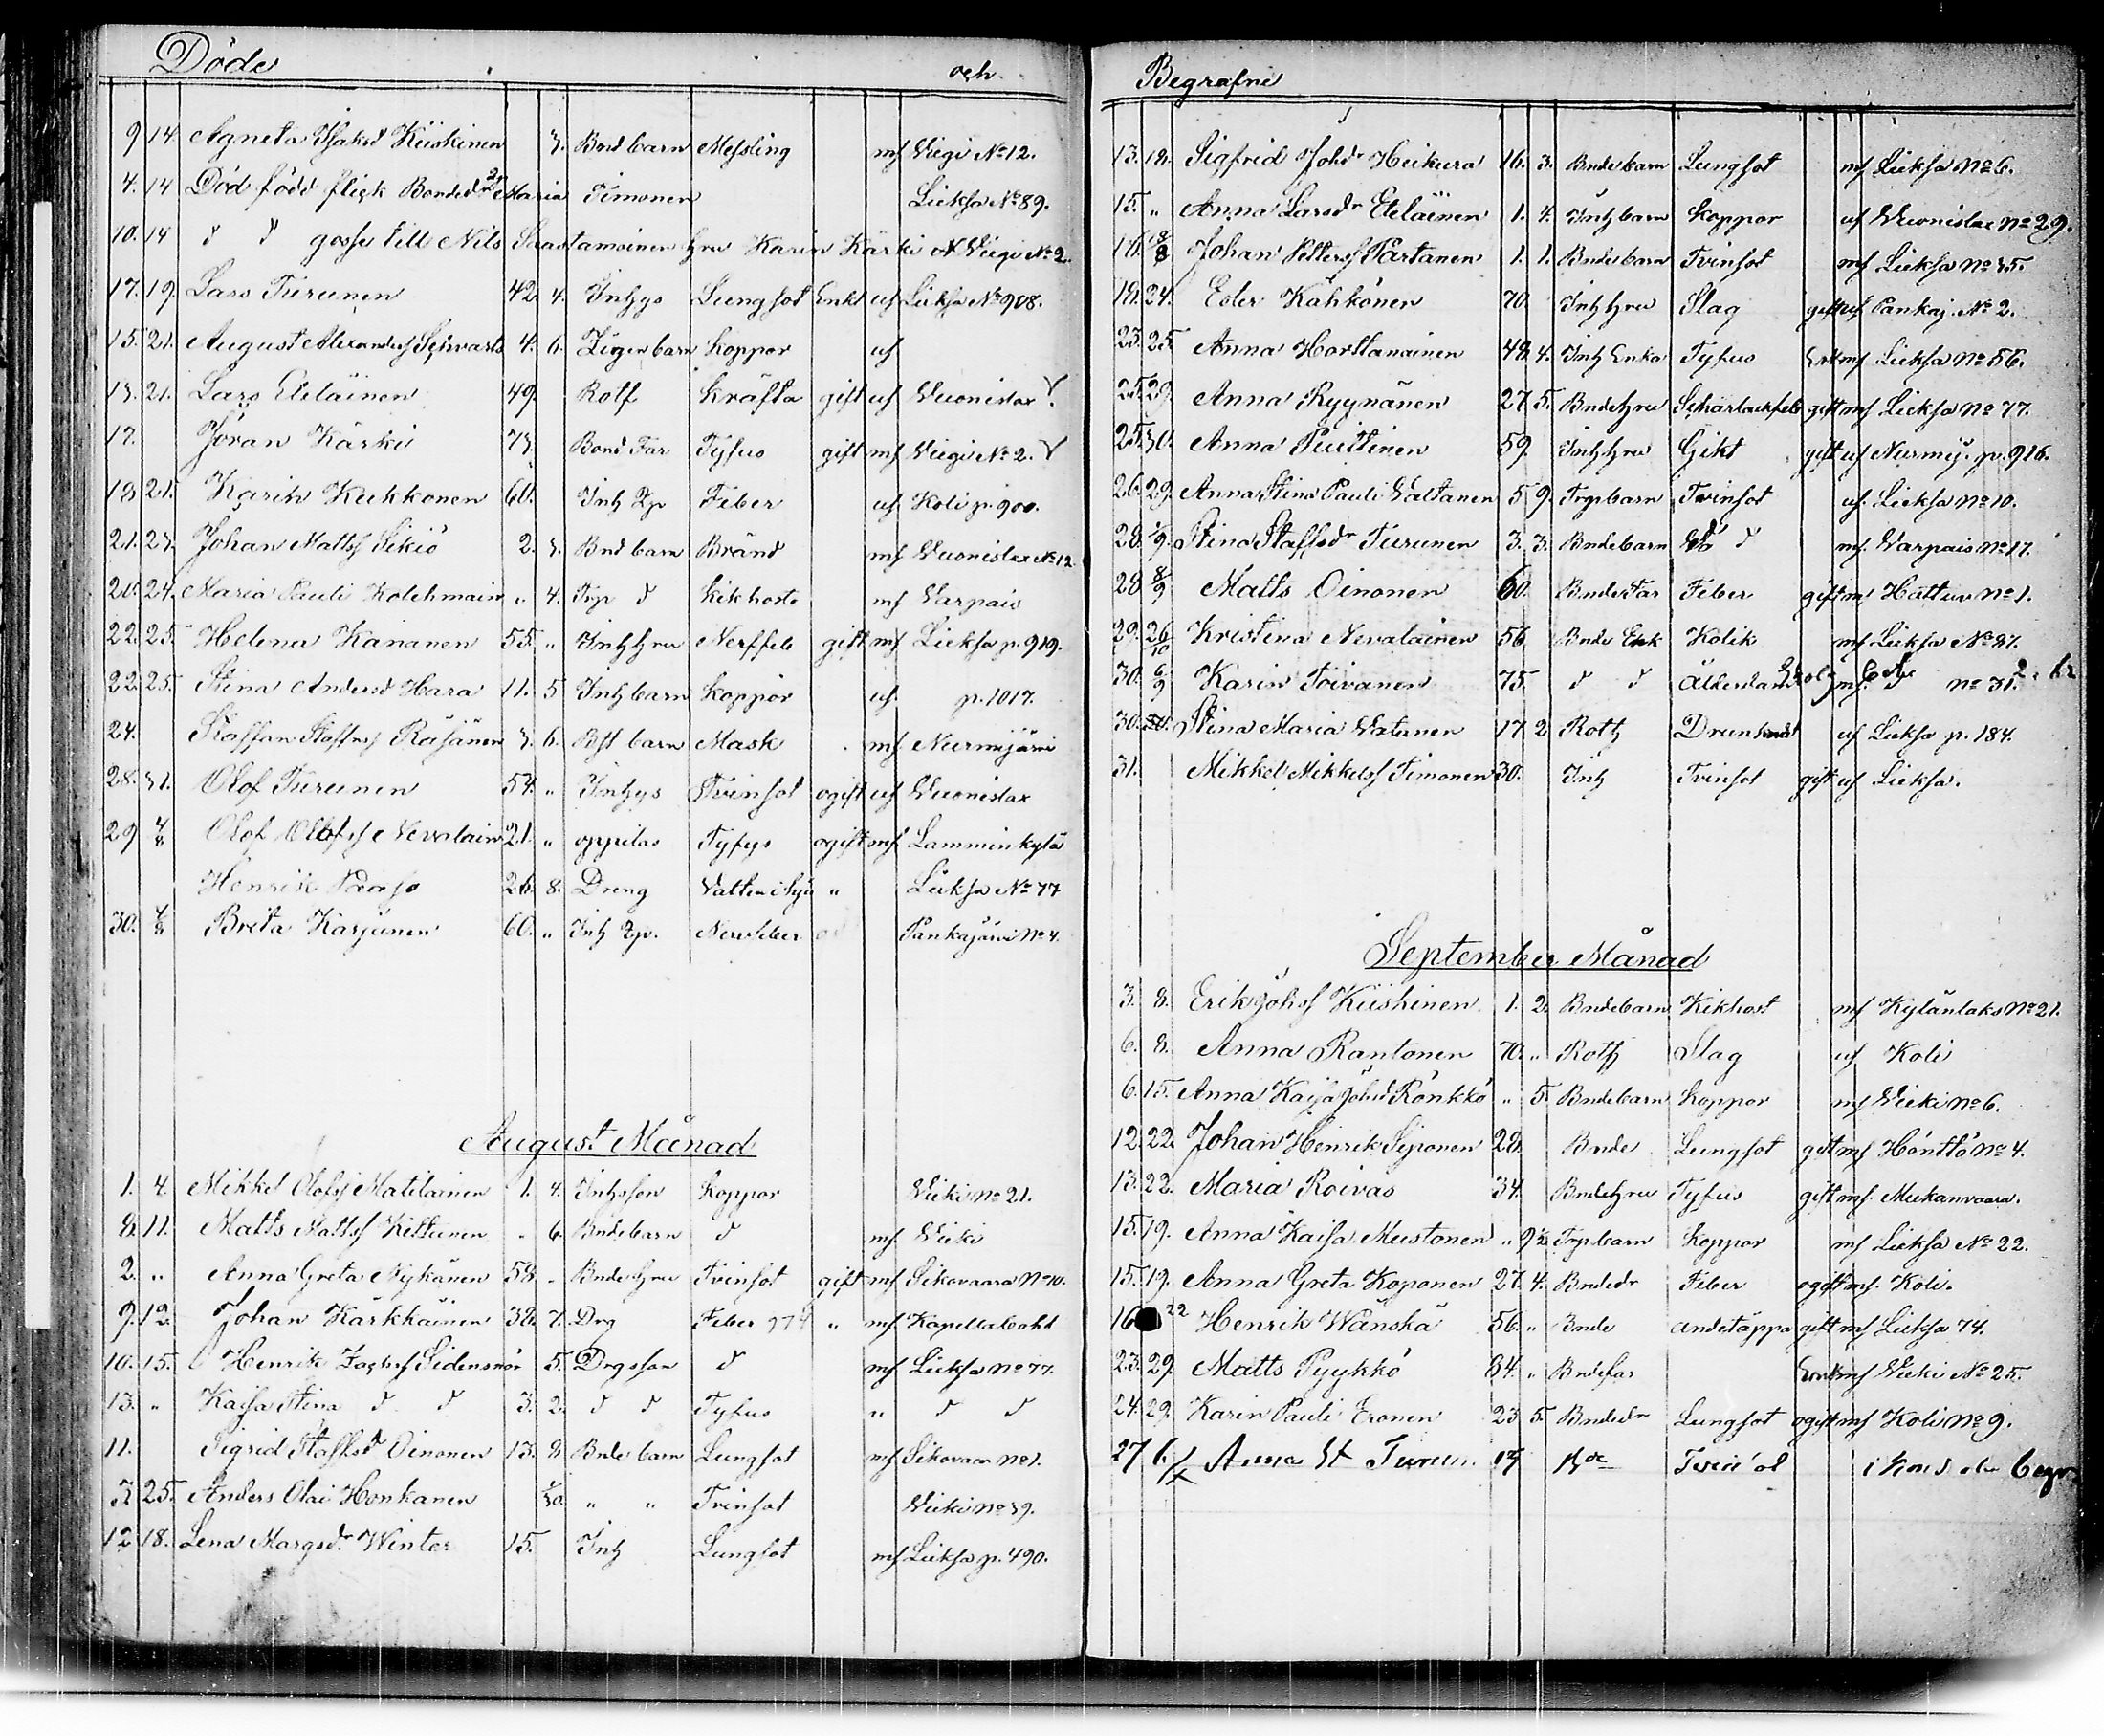 Döde och
9 14. Agneta Isaksd Kiiskinen 3. Bond barn Messling mf Viegi No 12.
4. 14 Död född flick Bonded Maria Timonen Lieksa No 89.
10. 14 d d gosse till Nils Saastamoinen hru Karin Kärki Viegi No 2.
17. 19. Lars Turunen 42 4. Inhys Lungsot Enkl uf Lieksa No 908.
15. 21. August Alexandersf Schvarts 4. 6. Zigen barn koppor uf
13. 21. Lars Eteläinen 49. Rotf kräfta gift uf Vuonislax
17. Jöran Kärki 73. Bond Far Tyfus gift mf Viegi No 2.
18 21. Karin Kukkonen 60. Inh Feber uf Koli p. 900.
21. 23. Johan Mattsf Sikiö 2. 3. Bnd barn Bränd mf Vuonislax No 12
21. 24. Maria Pauli Kolehmain „ 4. Trp d kikhosta mf Varpais
22. 25. Helena Kananen 55. „ Inhhru Nerffeb gift mf Lieksa p. 919.
22. 25. Stina Andersd Hara 11. 5 Inhbarn koppor uf. p. 1017.
24. Staffan Staffansf Räsänen 3. 6. barn Mask mf Nurmijärvi
28. 31. Olof Turunen 54. „ Inhys Tvinsot ogift uf Vuonislax
29 4/8 Olof Olofsf Nevalain 21. „ oppilas Tyfus ogift mf Lamminkylä
Henrik 26. 8. Dreng „ Lieksa No 77
30. 4/8 Breta Karjunen 60. „ Inh Nervfeber Pankajärvi No 4.
August Månad
1. 4. Mikkel Olofsf Matilainen 1. 4. Inhsson koppor Vieki No 21.
8. 11. Matts Mattsf Kettunen „ 6. Bndebarn d mf Vieki
2. „ Anna Greta Nykänen 58. „ Bnde hru Tvinsot gift mf Sikavaara No 10.
9. 12. Johan Kärkkäinen 38. 7. Drg Feber 974 „ mf Kapellabohl
10. 15. Henrik Sidensnör 5. Drgsson d mf Lieksa No 77.
13. „ Kaisa Stina d d 3. 2. d d Tyfus „ d d
11. Sigrid Staffsd Oinonen 13. 8 Bnde barn Lungsot mf Sikovaara No 1.
3 25. Anders Olai Honkanen „ „ Tvinsot Vieki No 39.
12 18. Lena Margsdr Winter 15. Inh Lungsot mf Lieksa p. 490.
Begrafne
13. 18. Sigfrid Johdr Heikura 16. 3. Bndebarn Lungsot mf Lieksa No 6.
15. „ Anna Larsdr Eteläinen 1. 4. Inhbarn koppor uf Vuonislax No 29.
Johan Pettersf Partanen 1. 1. Bndebarn Tvinsot mf Lieksa No 35.
18. 24. Ester Kähkönen 70 Inhhru Slag gift uf Pankaj. No 2.
23. 25. Anna Horttanainen 48. 4. Inh Enka Tyfus Enk mf Lieksa No 56.
25. 29. Anna Ryynänen 27. 5. Bndehru Scharlackfeb gift mf Lieksa No 77.
25. 30. Anna Puittinen 59. Inhhru Gikt gift uf Nurmij. p. 916.
26. 29. Anna Stina Pauli Valtanen 5 9. Trpbarn Tvinsot uf. Lieksa No 10.
28. 1/9. Stina Staffsdr Turunen 3. 3. Bndebarn d mf. Varpais No 17.
28 8/9 Matts Oinonen 60. BndeFar Feber gift mf Hattuv No 1.
29. 26/10 Kristina Nevalainen 56 Bnde Enk Kolik mf Lieksa No 27.
30. 6/9 Karin Toivanen 75. d d Ålderdom mf. d No 31.
30. Stina Maria Vatanen 17 2 Roth Drunknat uf Lieksa p. 184.
31. Mikkel Mikkelsf Timonen 30. Inh Tvinsot gift uf Lieksa.
September Månad
3. 8. Erik Johsf Kiiskinen 1. 2. Bndebarn Kikhost mf Kylänlaks No 21.
6. 8. Anna Rantonen 70. „ Roth Slag uf Koli
6. 15. Anna Kaisa Johsd Rönkkö „ 5. Bndebarn koppor mf Vieki No 6.
12. 22. Johan Henrik Siponen 28. Bnde Lungsot gift mf Höntto No 4.
13. 22. Maria Roivas 34. Bndehru Tyfus gift mf. Mukanvaara.
15. 19. Anna Kaisa Mustonen „ 9½ Trpbarn koppor mf Lieksa No 22.
15. 19. Anna Greta Koponen 27. 4. Bndedr Feber ogift mf. Koli.
16 22 Henrik Wänskä 56. „ Bnde andetäppa gift mf Lieksa 74.
23. 29. Matts Pyykkö 84. „ Bndefar Enkl mf Vieki No 25.
24. 29. Karin Pauli Eronen 23 5. Bndedr Lungsot ogift mf Koli No 9.
27 6/ Anna St Turun.